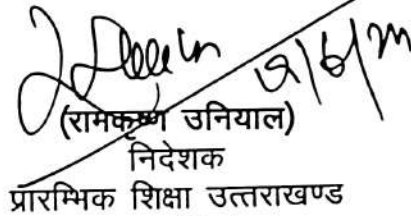 (रामकृष्ण उनियाल)
निदेशक
प्रारम्भिक शिक्षा उत्तराखण्ड